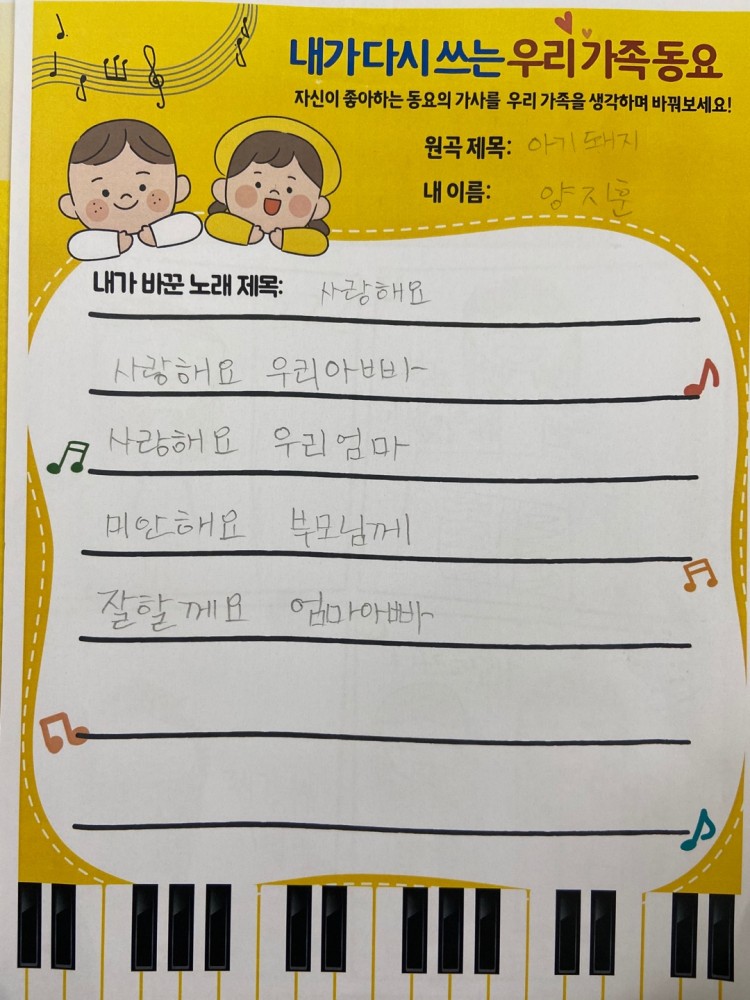 내가 다시 쓰는 우리 가족 동요
자신이 좋아하는 동요의 가사를 우리 가족을 생각하며 바꿔보세요!
원곡 제목: 아기돼지
내 이름: 양지훈
내가 바꾼 노래 제목: 사랑해요
사랑해요 우리아빠
사랑해요 우리엄마
미안해요 부모님께
잘할께요 엄마아빠